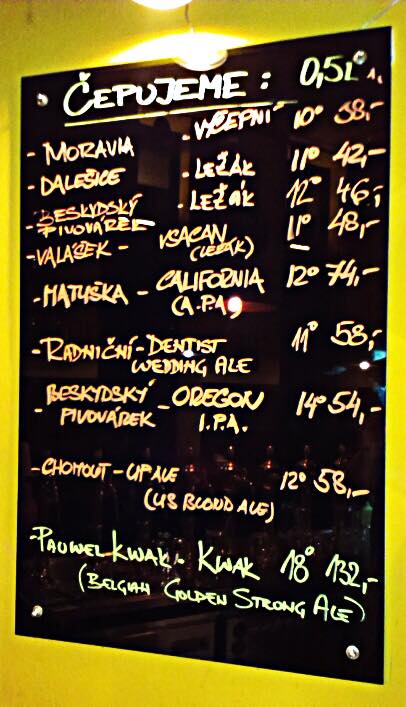 ČEPUJEME: 0,5L
- MORAVIA - VÝČEPNÍ 10° 38,-
- DALEŠICE - LEŽÁK 11° 42,-
- BESKYDSKÝ PIVOVÁREK - LEŽÁK 12° 46,-
- VALÁŠEK - VSACAN (LEŽÁK) 11° 48,-
- MATUŠKA - CALIFORNIA 12° 74,-
(A.P.A)
- RADNIČNÍ - DENTIST 11° 58,-
WEDDING ALE
BESKYDSKÝ - OREGON 14° 54,-
- PIVOVÁREK I.P.A.
- CHOMOUT - UP ALE 12° 58,-
(US BLOND ALE)
- PAUWEL KWAK - KWAK 18° 132,-
(BELGIAN GOLDEN STRONG ALE)